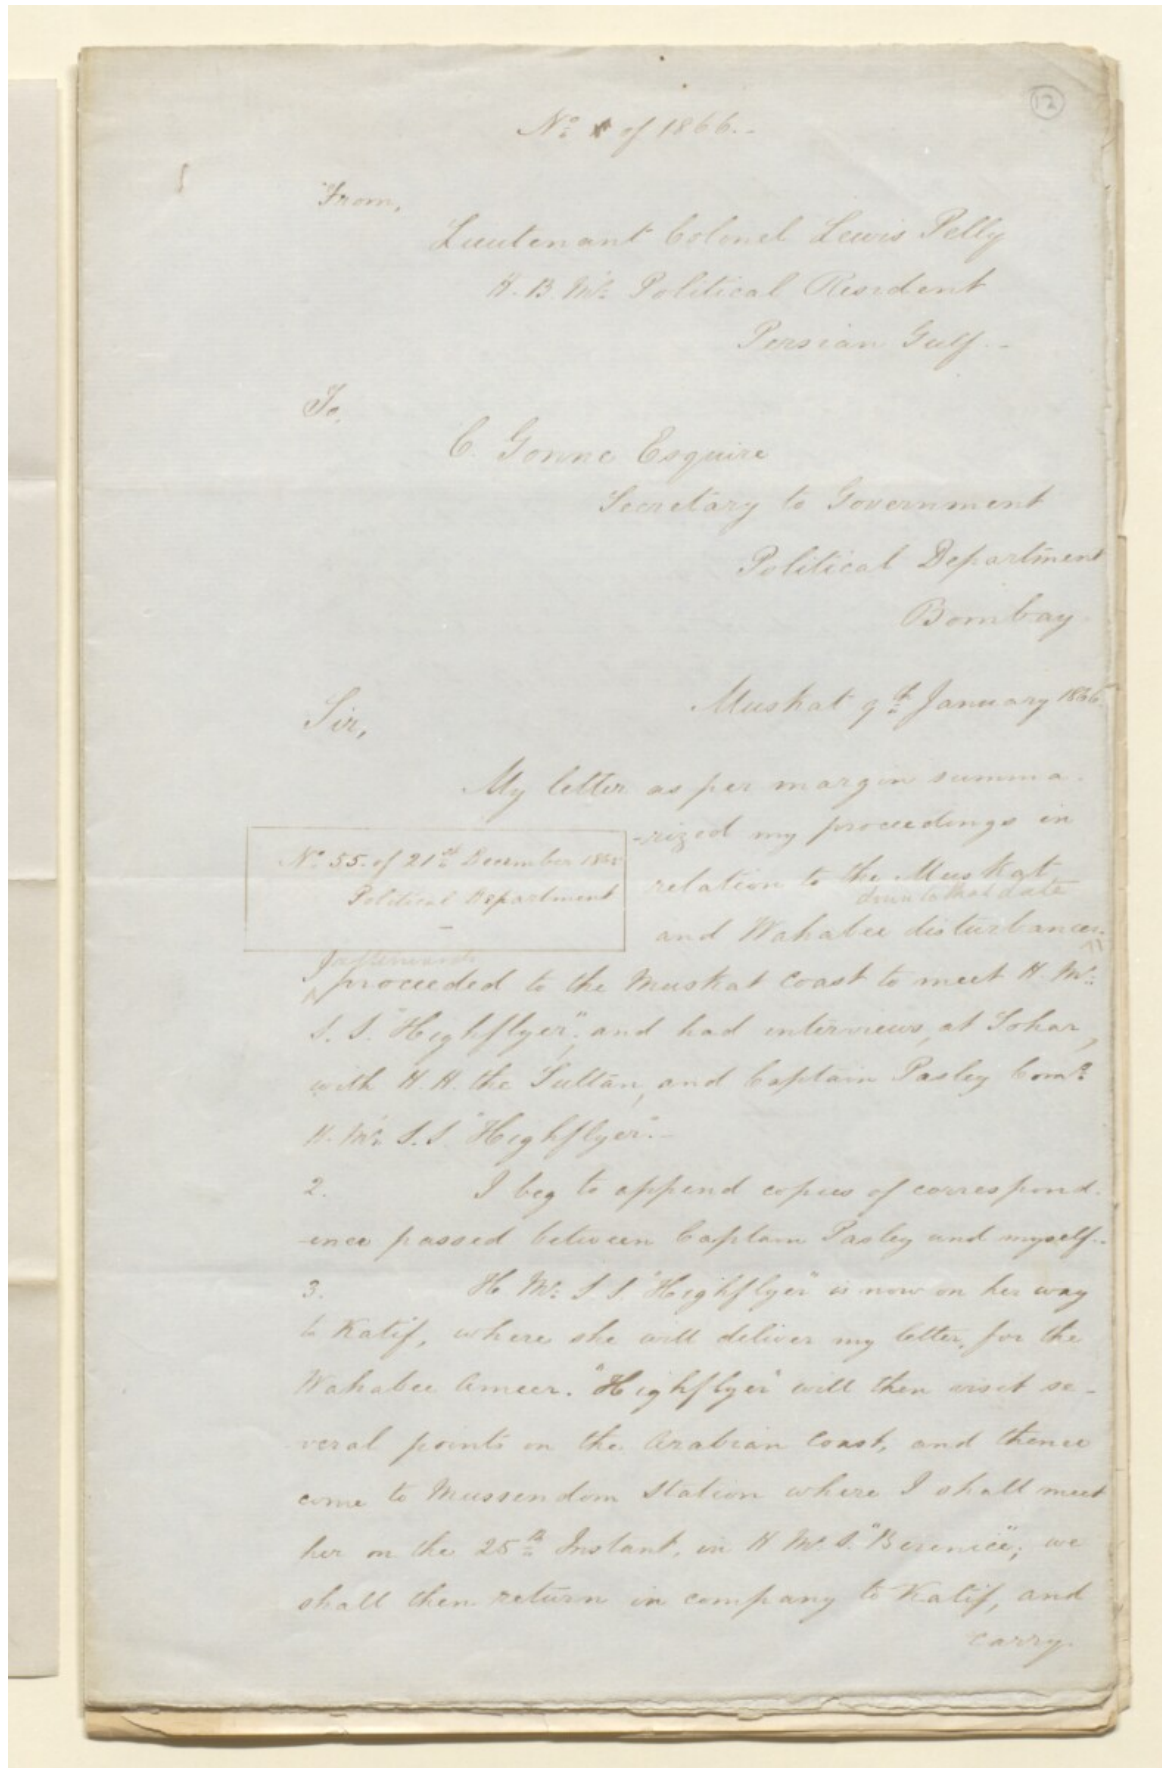 12
No of 1866.-
From,
Lieutenant Colonel Lewis Pelly
H. B. Ms. Political Resident
Persian Gulf.-
To,
C. Gonne Esquire
Secretary to Government
Political Department
Bombay
Muskat 9th January 1866.
Sir,
My letter as per margin summa-
-rized my proceedings in
No 55. of 21st December 1865
Political Department
relation to the Muskat
down to that date
and Wahabee disturbances.
I afterwards
proceeded to the Muskat Coast to meet H. Ms.
S. S. "Highflyer", and had interviews, at Sohar,
with H. H. the Sultan, and Captain Pasley Comg
H. Ms. S. S. "Highflyer".-
2. I beg to append copies of correspond-
-ence passed between Captain Pasley and myself.-
3. H. Ms. S. S. "Highflyer" is now on her way
to Katif, where she will deliver my letter, for the
Wahabee Ameer. "Highflyer" will then visit se-
-veral points on the Arabian Coast, and thence
come to Mussendom Station where I shall meet
her on the 25th Instant, in H. M. S. "Berenice"; we
shall then return in company to Katif, and
carry